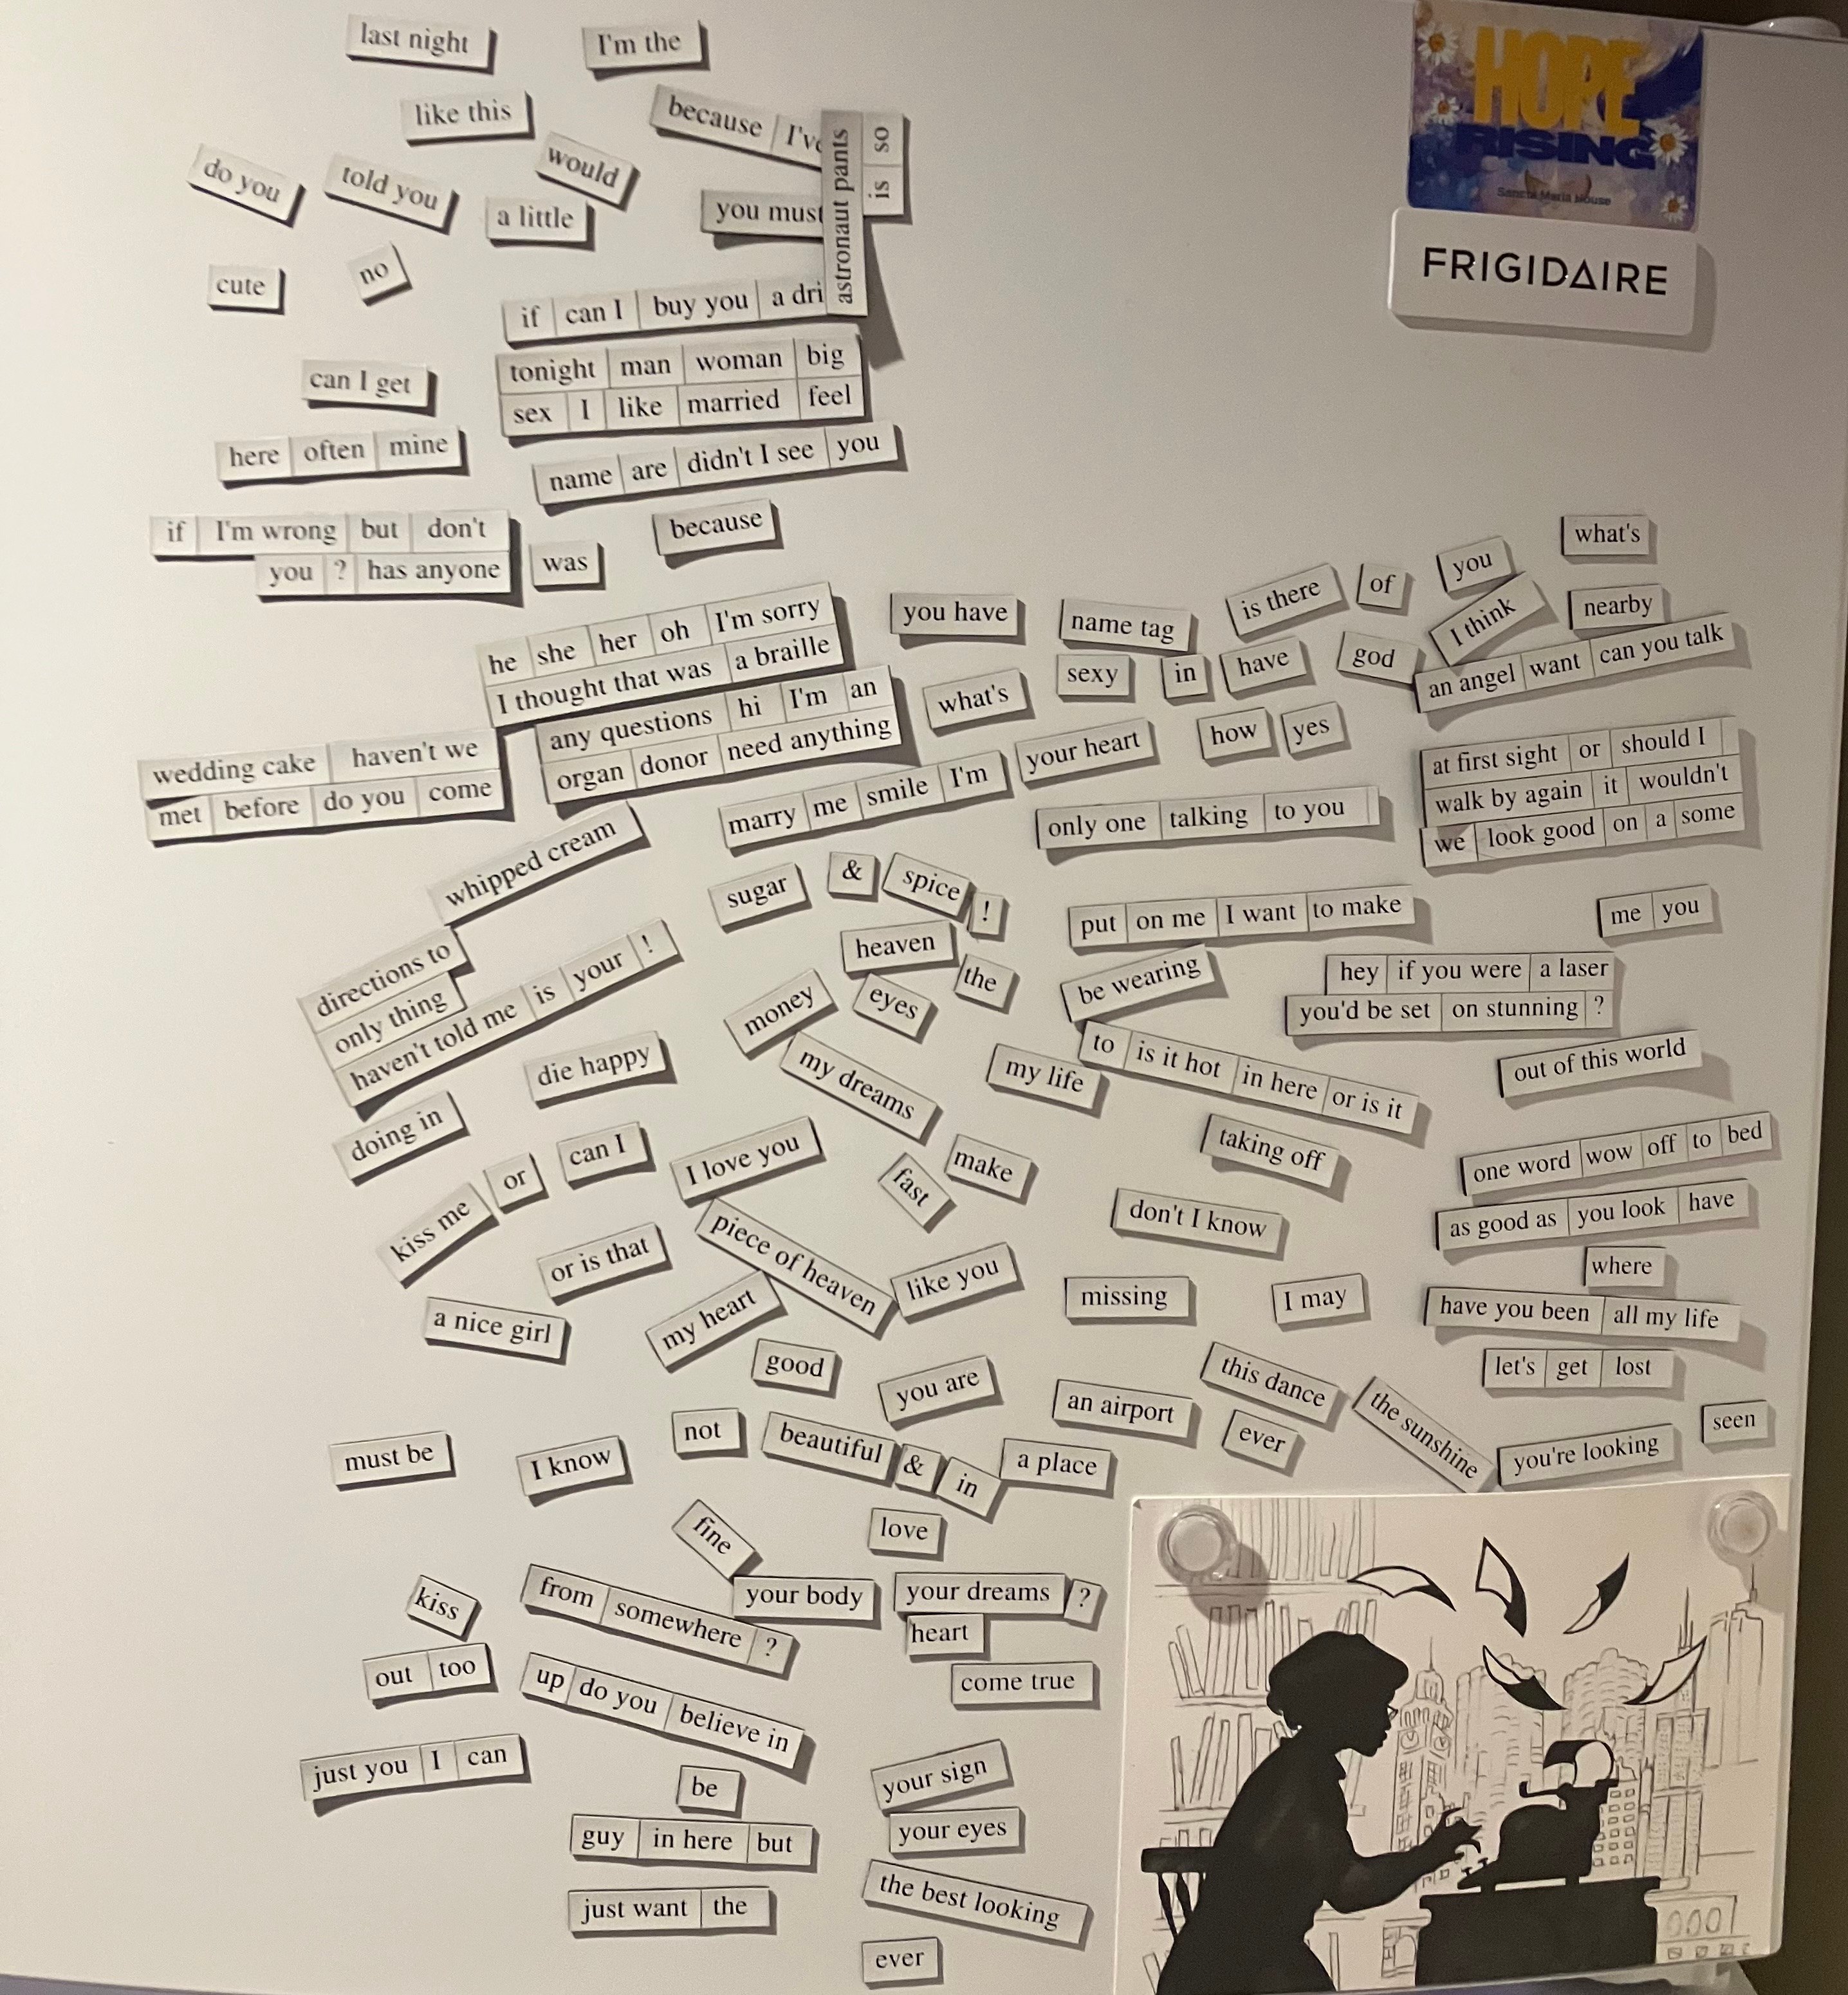 last night
I'm the
HOPE
RISING
Sancta Maria House
FRIGIDAIRE
like this
because I've
astronaut pants
is so
do you
told you
would
a little
you must
cute
no
if can I buy you a dri
can I get
tonight man woman big
sex I like married feel
here often mine
name are didn't I see you
if I'm wrong but don't
you ? has anyone
was
because
what's
is there
of
you
I think
nearby
you have
name tag
he she her oh I'm sorry
I thought that was a braille
sexy
in
have
god
an angel want can you talk
any questions hi I'm an
organ donor need anything
what's
your heart
how
yes
wedding cake haven't we
met before do you come
at first sight or should I
walk by again it wouldn't
we look good on a some
marry me smile I'm
only one talking to you
whipped cream
sugar
&
spice
!
put on me I want to make
me you
heaven
the
be wearing
hey if you were a laser
you'd be set on stunning ?
directions to
only thing
haven't told me is your !
money
eyes
die happy
my dreams
my life
to is it hot in here or is it
out of this world
doing in
can I
I love you
fast
make
taking off
one word wow off to bed
kiss me
or
don't I know
as good as you look have
or is that
piece of heaven
like you
where
a nice girl
my heart
missing
I may
have you been all my life
good
you are
an airport
this dance
let's get lost
must be
I know
not
beautiful
&
in
a place
ever
the sunshine
you're looking
seen
fine
love
kiss
from somewhere ?
your body
your dreams ?
heart
out too
up do you believe in
come true
just you I can
be
your sign
guy in here but
your eyes
just want the
the best looking
ever